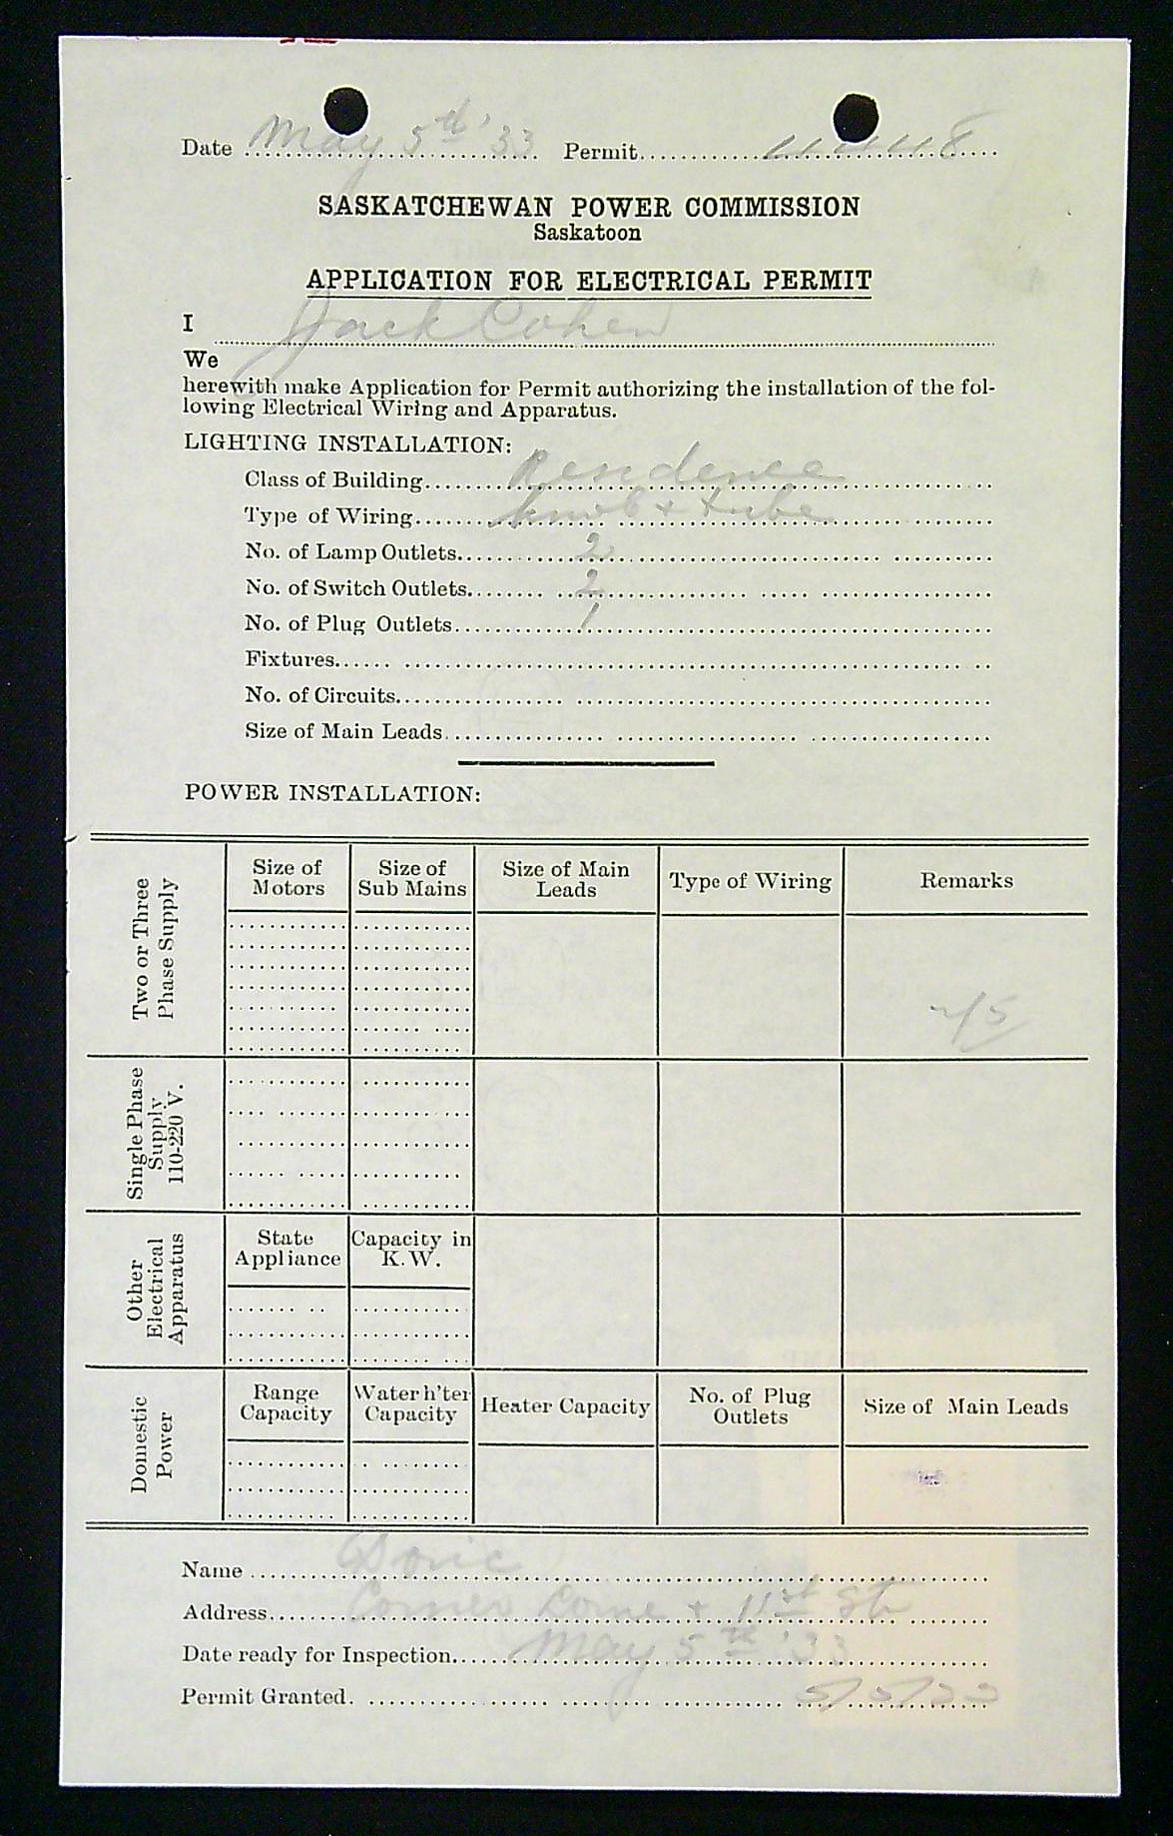 Date May 5th '33 Permit
SASKATCHEWAN POWER COMMISSION
Saskatoon
APPLICATION FOR ELECTRICAL PERMIT
I Jack Cohen
We
herewith make Application for Permit authorizing the installation of the fol-
lowing Electrical Wiring and Apparatus.
LIGHTING INSTALLATION:
Class of Building Residence
Type of Wiring knob + tube
No. of Lamp Outlets 2
No. of Switch Outlets 2
No. of Plug Outlets 1
Fixtures
No. of Circuits
Size of Main Leads
POWER INSTALLATION:
Two or Three
Phase Supply
Size of
Motors
Size of
Sub Mains
Size of Main
Leads
Type of Wiring
Remarks
Single Phase
Supply
110-220 V.
Other
Electrical
Apparatus
State
Appliance
Capacity in
K.W.
Domestic
Power
Range
Capacity
Water h'ter
Capacity
Heater Capacity
No. of Plug
Outlets
Size of Main Leads
Name
Address Corner Lorne + 11st St
Date ready for Inspection May 5th '33
Permit Granted 5/5/33